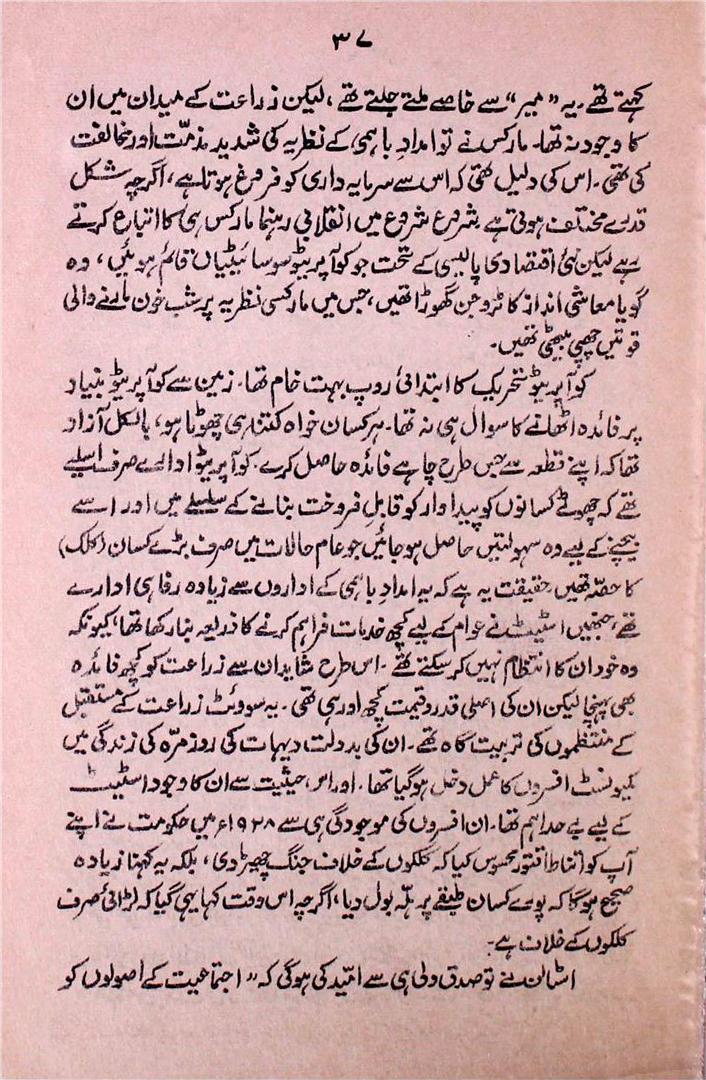 ۳۷
کہتے تھے۔ یہ ”میر“ سے خاصے ملتے جلتے تھے، لیکن زراعت کے میدان میں ان
کا وجود نہ تھا۔ مارکس نے تو امدادِ باہمی کے نظریہ کی شدید مذمّت اور مخالفت
کی تھی۔ اس کی دلیل تھی کہ اس سے سرمایہ داری کو فروغ ہوتا ہے، اگرچہ شکل
قدرے مختلف ہوتی ہے۔ شروع شروع میں انقلابی رہنما مارکس ہی کا اتباع کرتے
رہے لیکن نئی اقتصادی پالیسی کے تحت جو کوآپریٹو سوسائیٹیاں قائم ہوئیں، وہ
گویا معاشی انداز کا ٹروجن گھوڑا تھیں، جس میں مارکسی نظریہ پر شب خون مارنے والی
قوتیں چھپی بیٹھی تھیں۔
کوآپریٹو تحریک کا ابتدائی روپ بہت خام تھا۔ زمین سے کوآپریٹو بنیاد
پر فائدہ اٹھانے کا سوال ہی نہ تھا۔ ہر کسان خواہ کتنا ہی چھوٹا ہو، بالکل آزاد
تھا کہ اپنے قطعہ سے جس طرح چاہے فائدہ حاصل کرے۔ کوآپریٹو ادارے صرف اسلیے
تھے کہ چھوٹے کسانوں کو پیداوار کو قابلِ فروخت بنانے کے سلسلے میں اور اسے
بیچنے کے لیے وہ سہولتیں حاصل ہوجائیں جو عام حالات میں صرف بڑے کسان (کلک)
کا حصّہ تھیں۔ حقیقت یہ ہے کہ یہ امدادِ باہمی کے اداروں سے زیادہ رفاہی ادارے
تھے، جنھیں اسٹیٹ نے عوام کے لیے کچھ خدمات فراہم کرنے کا ذریعہ بنا رکھا تھا، کیونکہ
وہ خود ان کا انتظام نہیں کرسکتے تھے۔ اس طرح شاید ان سے زراعت کو کچھ فائدہ
بھی پہنچا لیکن ان کی اصلی قدر و قیمت کچھ اور ہی تھی۔ یہ سوویٹ زراعت کے مستقبل
کے منتظموں کی تربیت گاہ تھے۔ ان کی بدولت دیہات کی روزمرّہ کی زندگی میں
کمیونسٹ افسروں کا عمل دخل ہوگیا تھا۔ اور اس حیثیت سے ان کا وجود اسٹیٹ
کے لیے بے حد اہم تھا۔ ان افسروں کی موجودگی ہی سے ۱۹۲۸ء میں حکومت نے اپنے
آپ کو اتنا طاقتور محسوس کیا کہ کلکوں کے خلاف جنگ چھیڑ دی، بلکہ یہ کہنا زیادہ
صحیح ہوگا کہ پورے کسان طبقے پر ہلّہ بول دیا، اگرچہ اس وقت کہا یہی گیا کہ لڑائی صرف
کلکوں کے خلاف ہے۔
اسٹالن نے تو صدق دلی ہی سے امّید کی ہوگی کہ ”اجتماعیت کے اصولوں کو